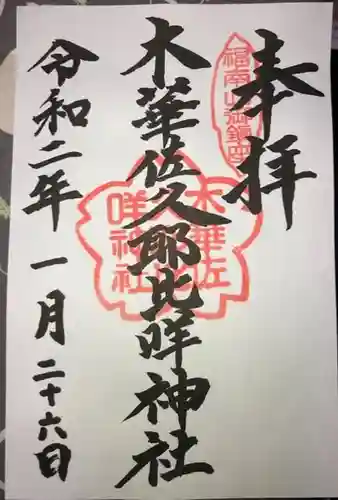 奉拝
福南山御鎮座
木華佐久耶比咩神社
木華佐
久耶比
咩神社
令和二年一月二十六日